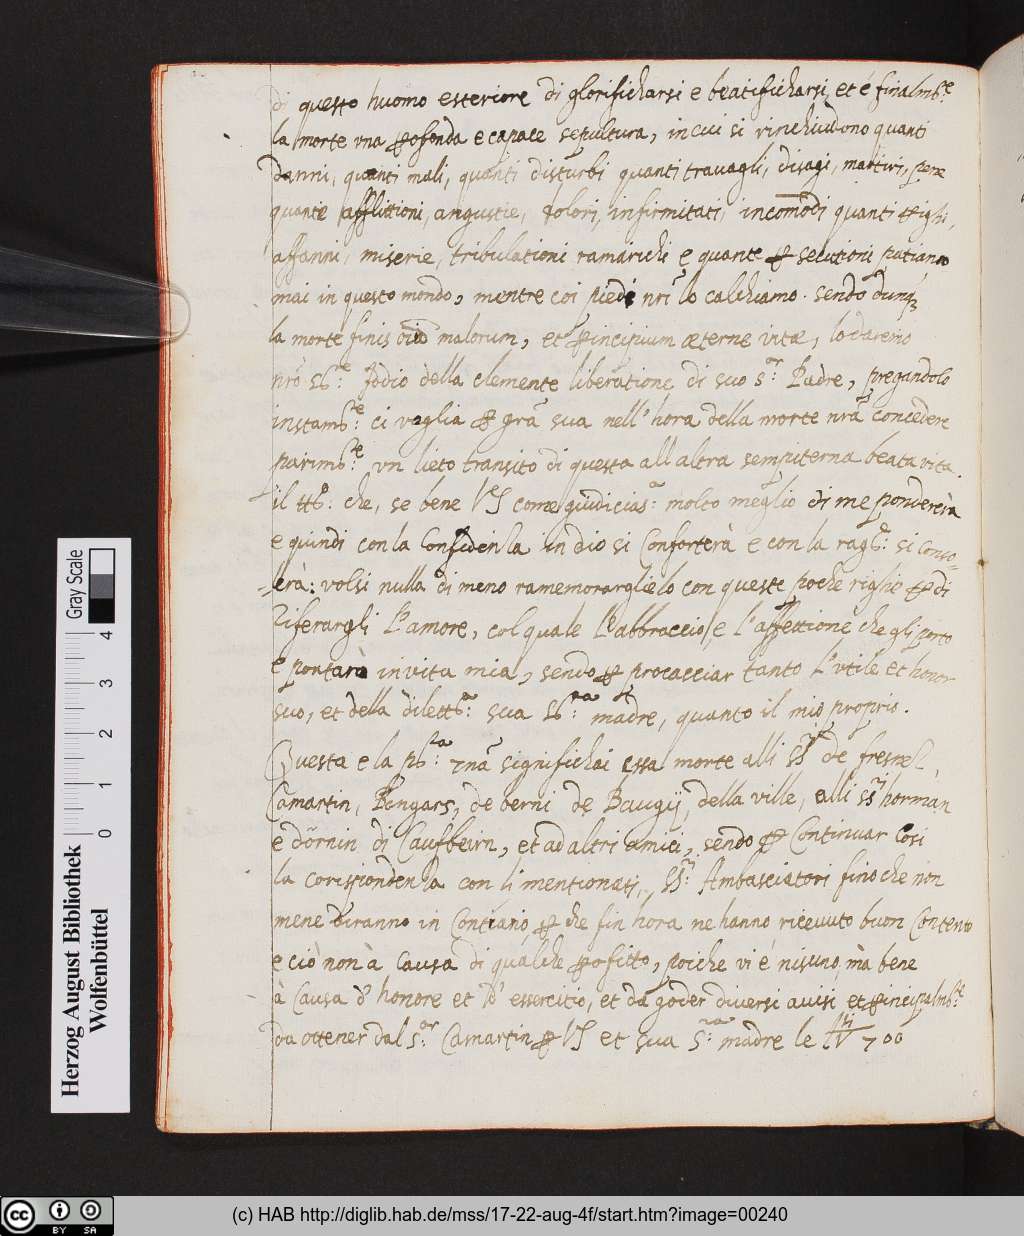 di questo huomo esteriore di glorificharsi e beatificharsi, et é finalmte
la morte una profonda e capace sepultura, in cui si rinchiudono quanti
danni, quanti mali, quanti disturbi quanti travagli, disagi, martiri, pene
quante afflittioni, angustie, dolori, infirmitati, incomõdi quanti
affanni, miserie, tribulationi ramarichi e quante persecutioni patiamo
mai in questo mondo, mentre coi piedi nri lo calchiamo. Sendo dunq3
la morte finis oiũ malorum, et principium æterne vitæ, lodaremo
nrõ Sre Iddio della clemente liberatione di suo Sr Padre, pregandolo
instamte: ci voglia per grã sua nell' hora della morte nrã concedere
parimte: un lieto transito di questa all altra sempiterna beata vita.
il tto: che, se bene VS come molto meglio di me ponderèrà
e quindi con la Confidenza in dio si Conforterà e con la ragne: si Conso=
=lerà: volsi nulla di meno ramemorarglielo con queste poche righe per di
L'amore, col quale L'abbraccio, e l'affettione che gli porto
e portarò in vita mia, sendo per procacciar tanto l'utile et honor
suo, et della dilettma: sua Sra madre, quanto il mio proprio.
Questa e la significhai essa morte alli SSri de fresnes,
Camartin, Bongars, de berni de Baugij, della ville, e alli SSri horman
e dörnin di Caufbeirn, et ad altri amici, sendo per Continuar Cosi
la Corrispondenza con li mentionati, SSri Ambasciatori fino che non
mene diranno in Contrario, per che fin hora ne hanno ricevuto buon Contento
e ciò non à Causa di qualche profitto, poiche vi é nisuno, mà bene
à Causa d' honore et d' essercitio, et da goder diversi avisi et principalmte:
da ottener dal Sor: Camartin per VS et sua Sra: madre le 700
Gray Scale
0 1 2 3 4
Herzog August Bibliothek
Wolfenbüttel
cc BY SA
(c) HAB http://diglib.hab.de/mss/17-22-aug-4f/start.htm?image=00240